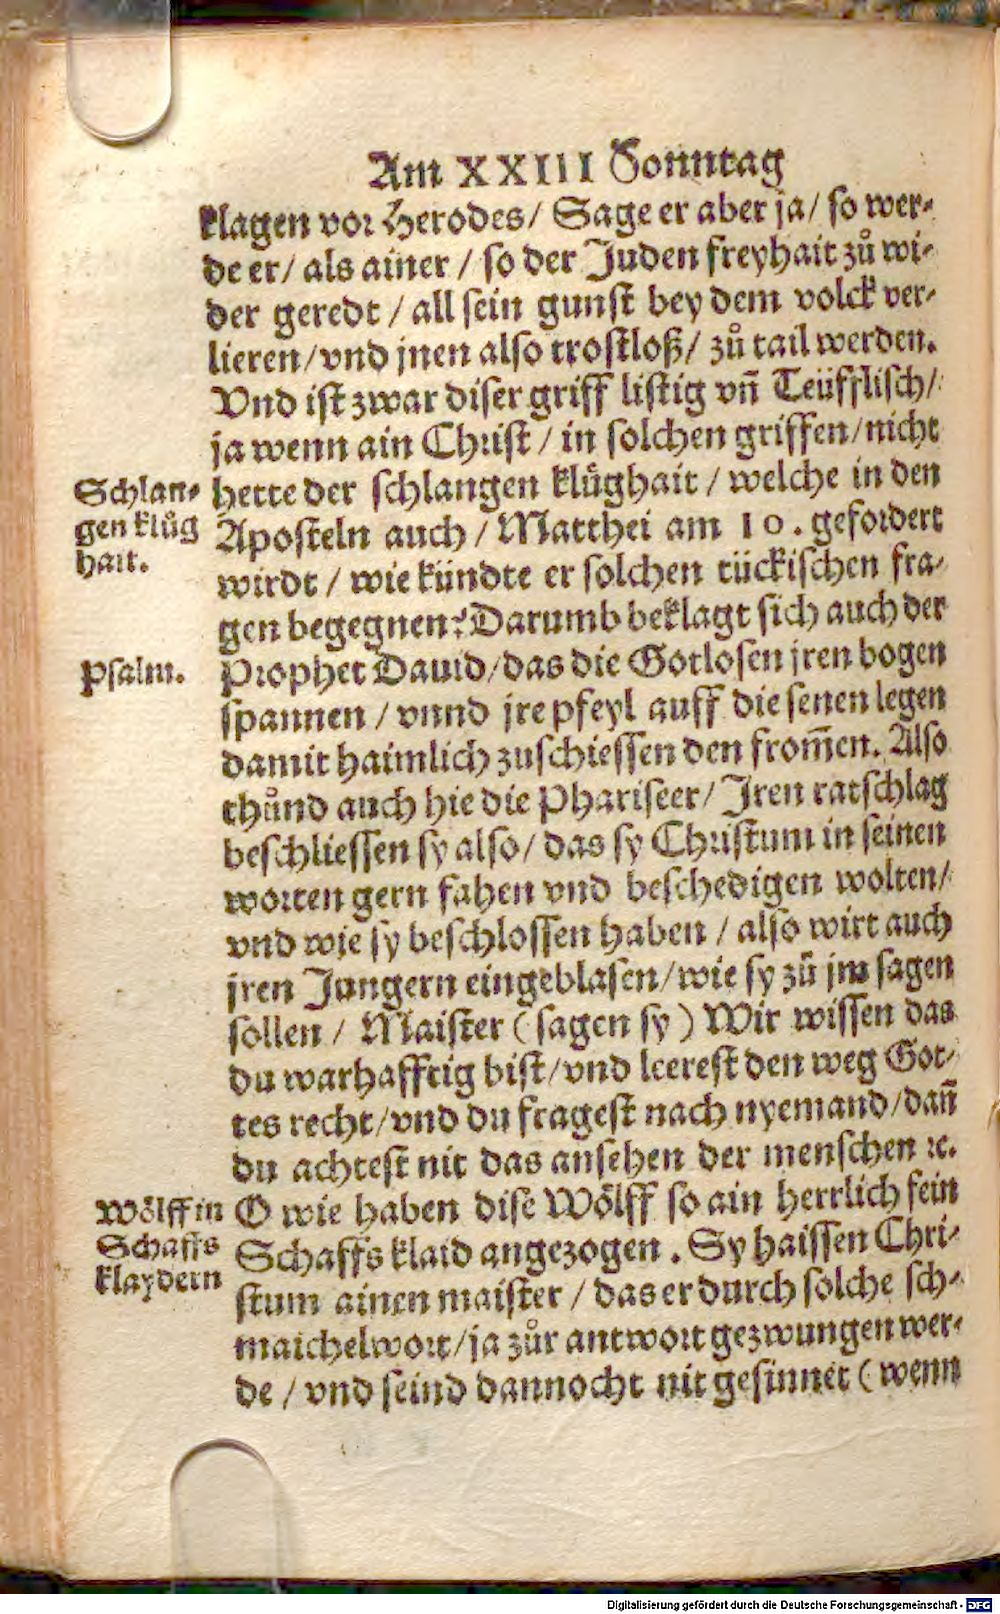 Am XXIII Sonntag
klagen vor Herodes/ Sage er aber ja/ so wer-
de er/ als ainer / so der Juden freyhait zů wi-
der geredt / all sein gunst bey dem volck ver-
lieren/vnd jnen also trostloß/ zů tail werden.
Vnd ist zwar diser griff listig vñ Teüfflisch/
ja wenn ain Christ / in solchen griffen/nicht
Schlan-
gen klůg
hait.
hette der schlangen klůghait / welche in den
Aposteln auch / Matthei am 10. gefordert
wirdt / wie kündte er solchen tückischen fra-
gen begegnen? Darumb beklagt sich auch der
Psalm.
Prophet Dauid/das die Gotlosen jren bogen
spannen / vnnd jre pfeyl auff die senen legen
damit haimlich zuschiessen den from̃en. Also
thůnd auch hie die Phariseer/ Jren ratschlag
beschliessen sy also/ das sy Christum in seinen
worten gern fahen vnd beschedigen wolten/
vnd wie sy beschlossen haben / also wirt auch
jren Jungern eingeblasen/wie sy zů jm sagen
sollen / Maister ( sagen sy ) Wir wissen das
du warhafftig bist/vnd leerest den weg Got-
tes recht/vnd du fragest nach nyemand/dañ
du achtest nit das ansehen der menschen ꝛc.
Wölff in
Schaffs
klaydern
O wie haben dise Wölff so ain herrlich fein
Schaffs klaid angezogen . Sy haissen Chri-
stum ainen maister / das er durch solche sch-
maichelwort/ja zůr antwort gezwungen wer-
de / vnd seind dannocht nit gesinnet ( wenn
Digitalisierung gefördert durch die Deutsche Forschungsgemeinschaft - DFG